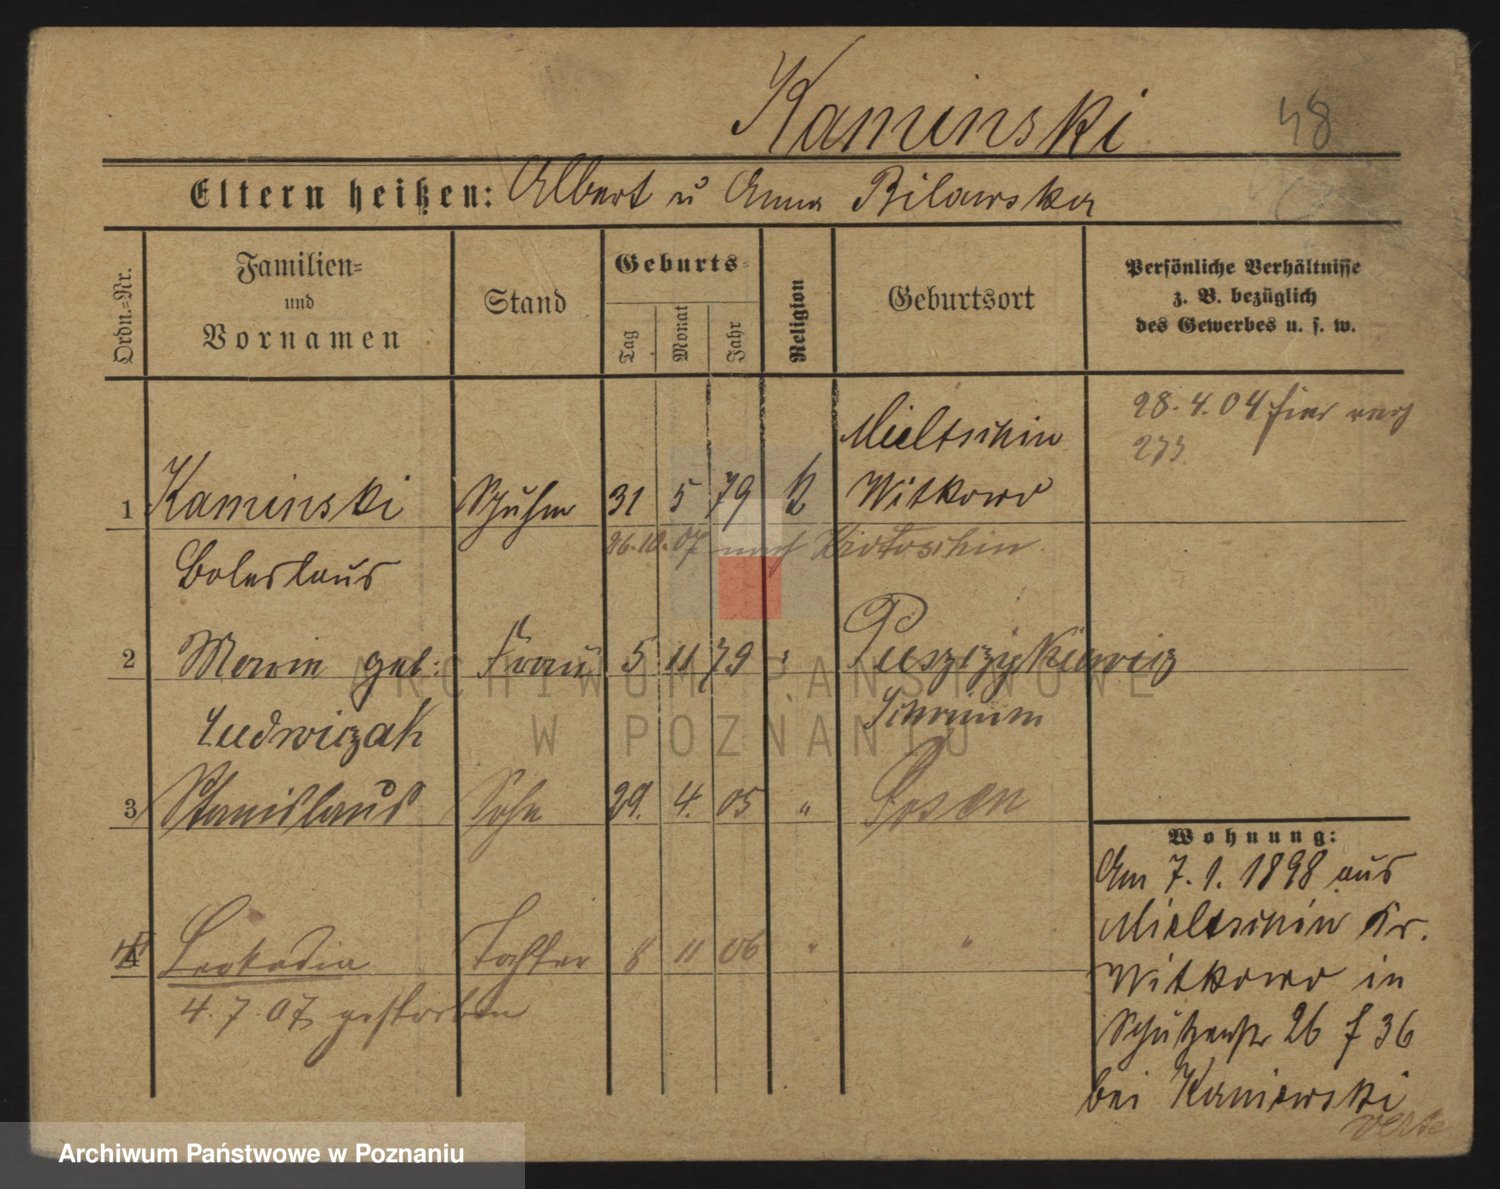 Kaminski
48
Eltern heißen: Albert u Anna Bilawska
Ordn.-Nr.
Familien- und Vornamen
Stand
Geburts-
Tag
Monat
Jahr
Religion
Geburtsort
Persönliche Verhältnisse
z. B. bezüglich
des Gewerbes u. s. w.
28. 4. 04 hier
273
Mieltschin
1 Kaminski Schuhm 31 5 79 k Witkowo
26.10.07 nach Krotoschin
Boleslaus
2 Marie geb: Frau 5 11 79 " Puszczykiewicz
Ludwiczak Schrimm
3 Stanislaus Sohn 29. 4. 05 " Posen
4 Leokadia Tochter 8 11 06 " "
4. 7. 07 gestorben
Wohnung:
Am 7. 1. 1898 aus
Mieltschin Kr.
Witkowo in
Schützenstr 26 f 36
bei Kaniewski
verte
ARCHIWUM PAŃSTWOWE
W POZNANIU
Archiwum Państwowe w Poznaniu